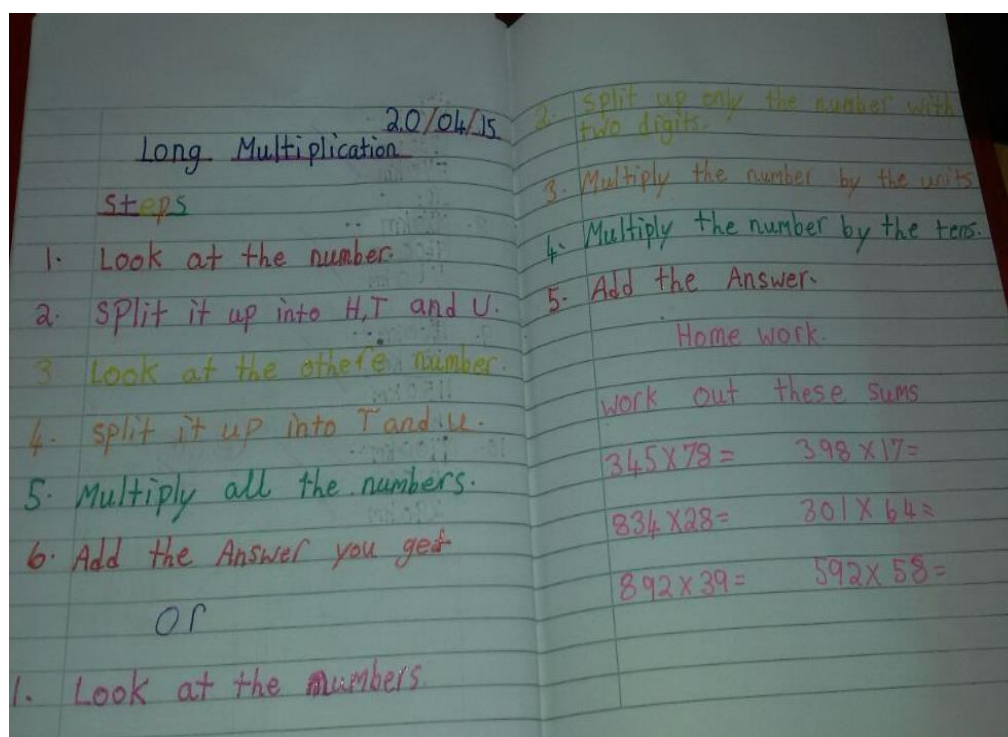 20/04/15
Long Multiplication
Steps
1. Look at the number.
2. Split it up into H,T and U.
3 Look at the othere number.
4. Split it up into T and U.
5. Multiply all the numbers.
6. Add the Answer you get
or
1. Look at the numbers
2. Split up only the number with
two digits.
3. Multiply the number by the units
4. Multiply the number by the tens.
5. Add the Answer.
Home work.
work out these sums
345X78= 398X17=
834X28= 301X64=
892X39= 592X58=